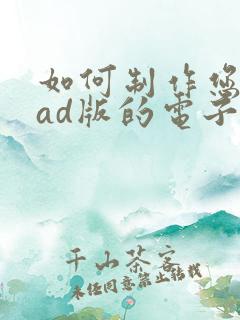 如何制作您
ad版的電子
千山茶客
未经同意禁止转载